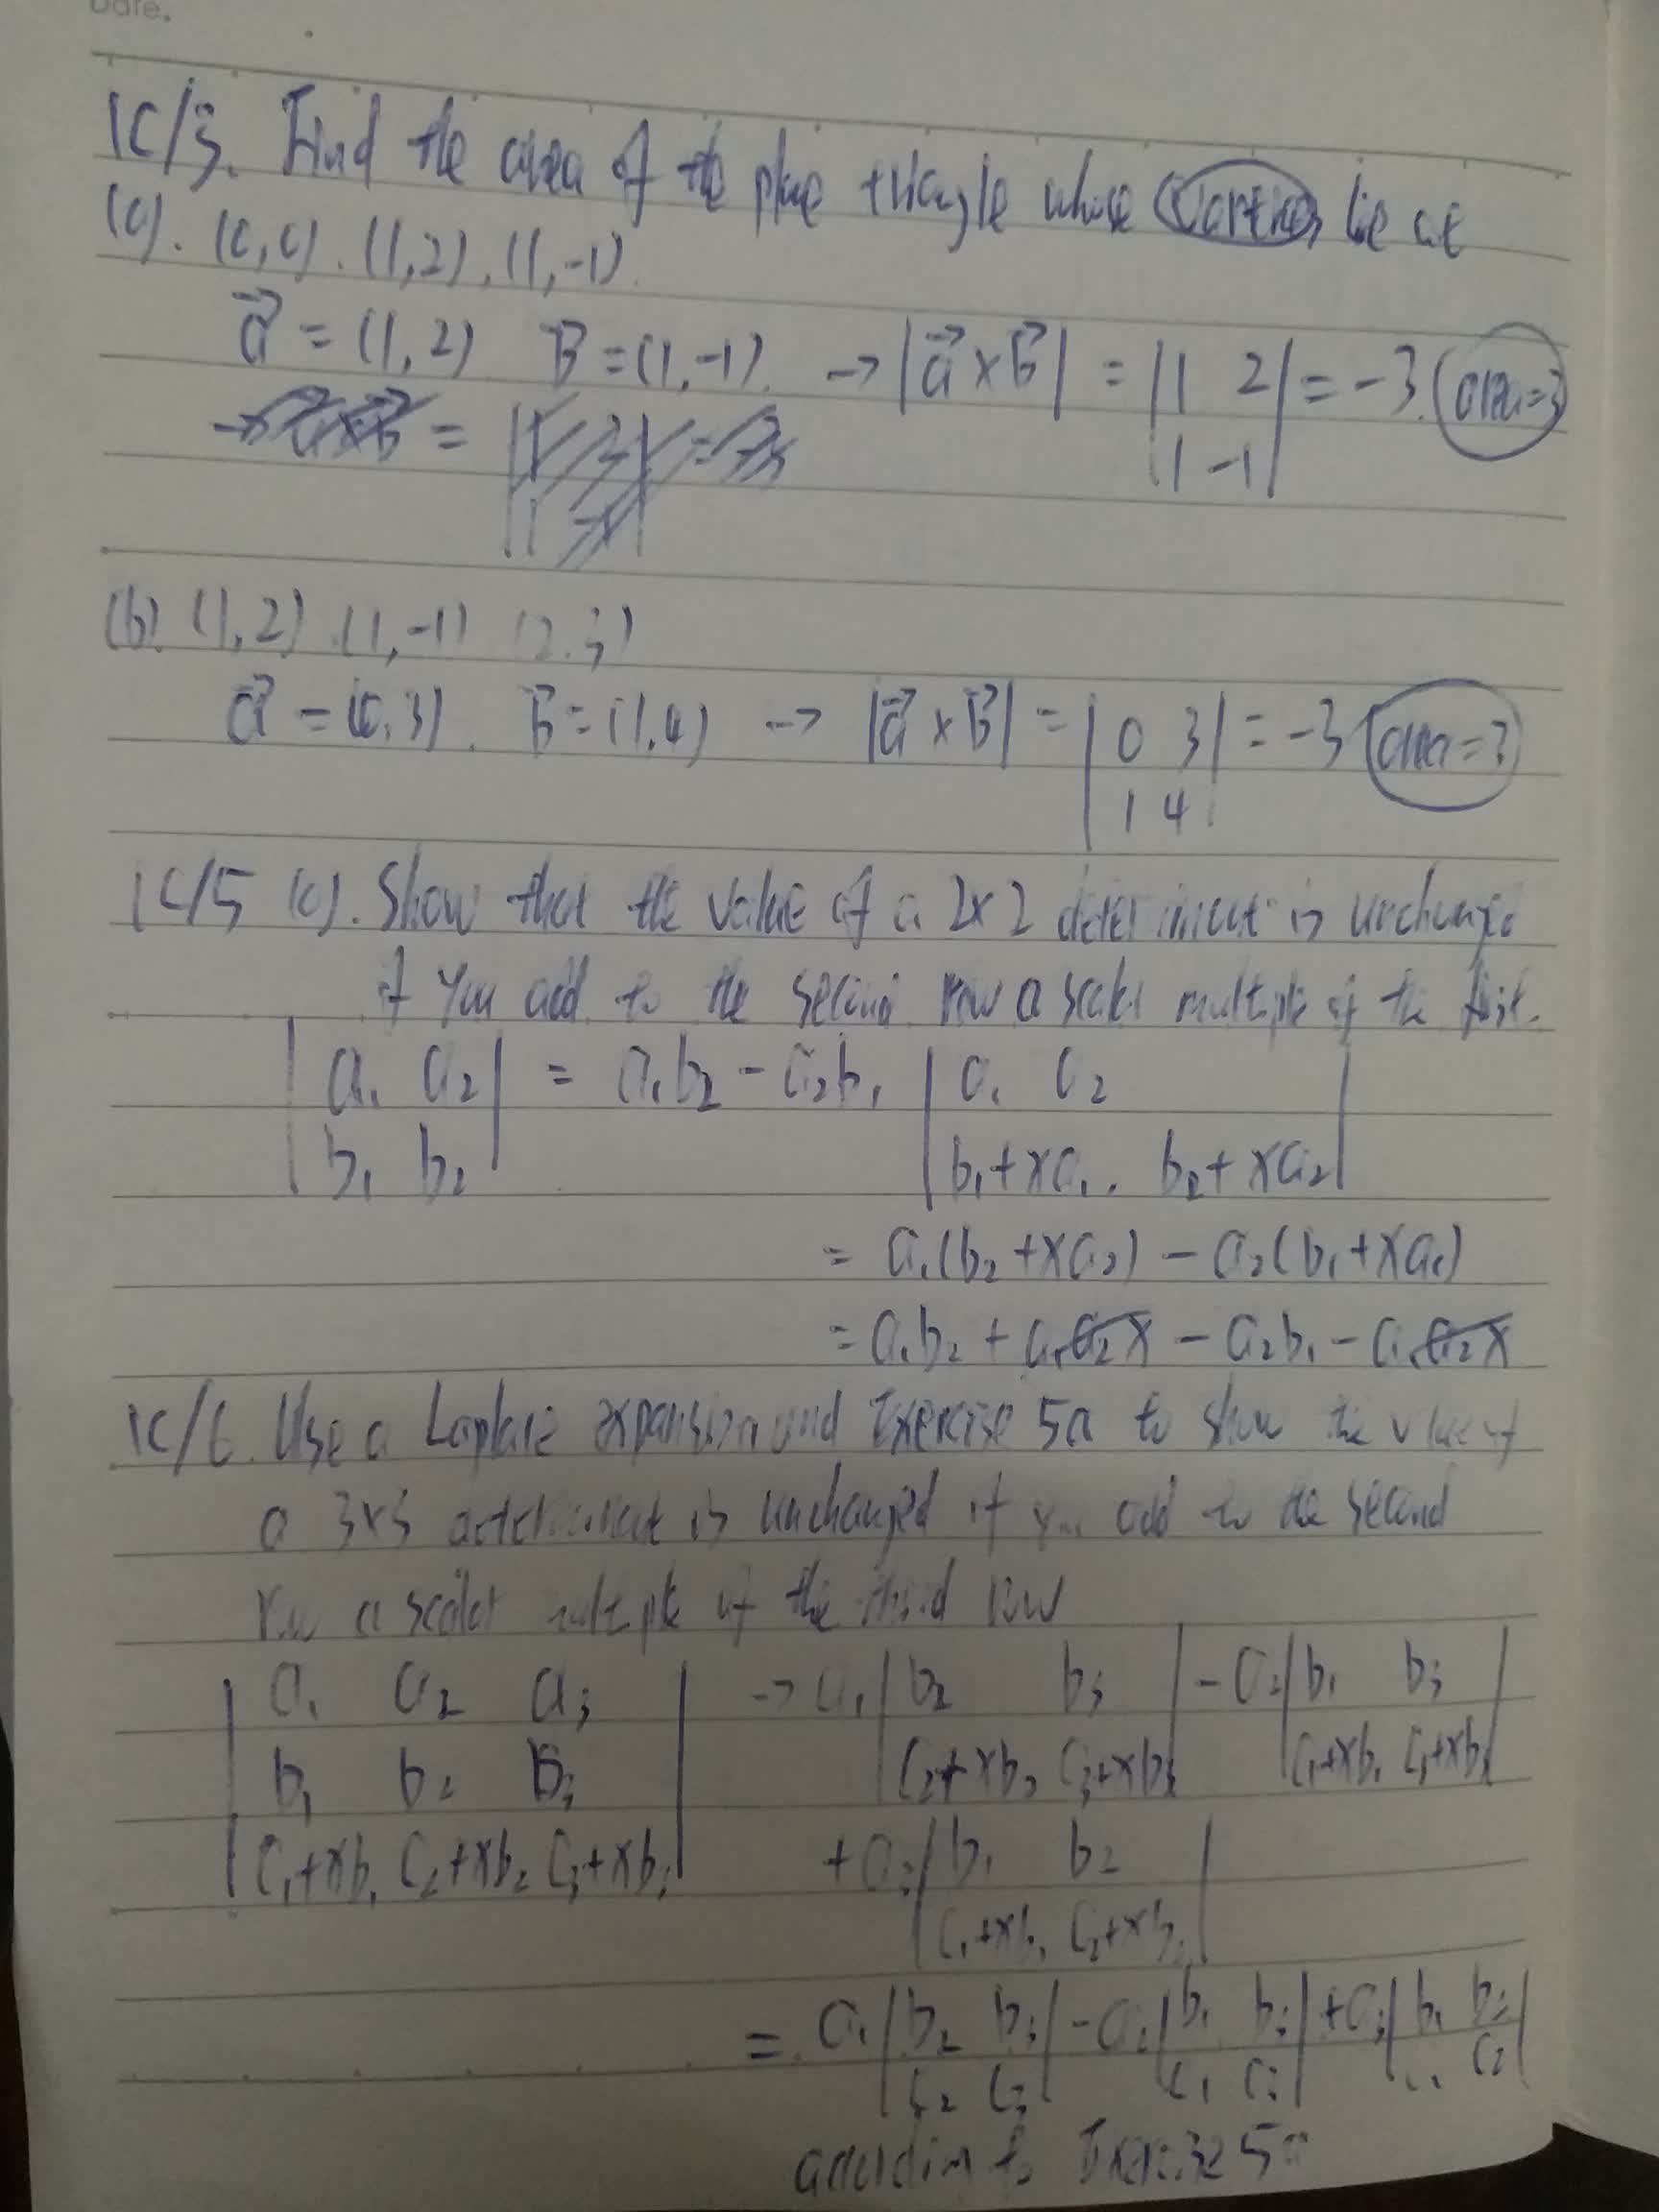 Date.
1C/3. Find the area of the plane triangle whose vertices lie at
(a). (0,0). (1,2), (1,-1).
a⃗ = (1,2) B⃗ = (1,-1). → |a⃗ × B⃗| = |1 2; 1 -1| = -3. area=3
(b). (1,2) (1,-1) (2,3)
a⃗ = (0,3). B⃗ = (1,4) → |a⃗ × B⃗| = |0 3; 1 4| = -3 area=3
1C/5 (a). Show that the value of a 2×2 determinant is unchanged
if you add to the second row a scalar multiple of the first.
|a₁ a₂; b₁ b₂| = a₁b₂ - a₂b₁ |a₁ a₂; b₁+xa₁ b₂+xa₂|
= a₁(b₂+xa₂) - a₂(b₁+xa₁)
= a₁b₂ + a₁a₂x - a₂b₁ - a₁a₂x
1C/6. Use a Laplace expansion and Exercise 5a to show the value of
a 3×3 determinant is unchanged if you add to the second
row a scalar multiple of the third row
|a₁ a₂ a₃; b₁ b₂ b₃; c₁+xb₁ c₂+xb₂ c₃+xb₃| → a₁|b₂ b₃; c₂+xb₂ c₃+xb₃| - a₂|b₁ b₃; c₁+xb₁ c₃+xb₃|
+ a₃|b₁ b₂; c₁+xb₁ c₂+xb₂|
= a₁|b₂ b₃; c₂ c₃| - a₂|b₁ b₃; c₁ c₃| + a₃|b₁ b₂; c₁ c₂|
to Exercise 5a